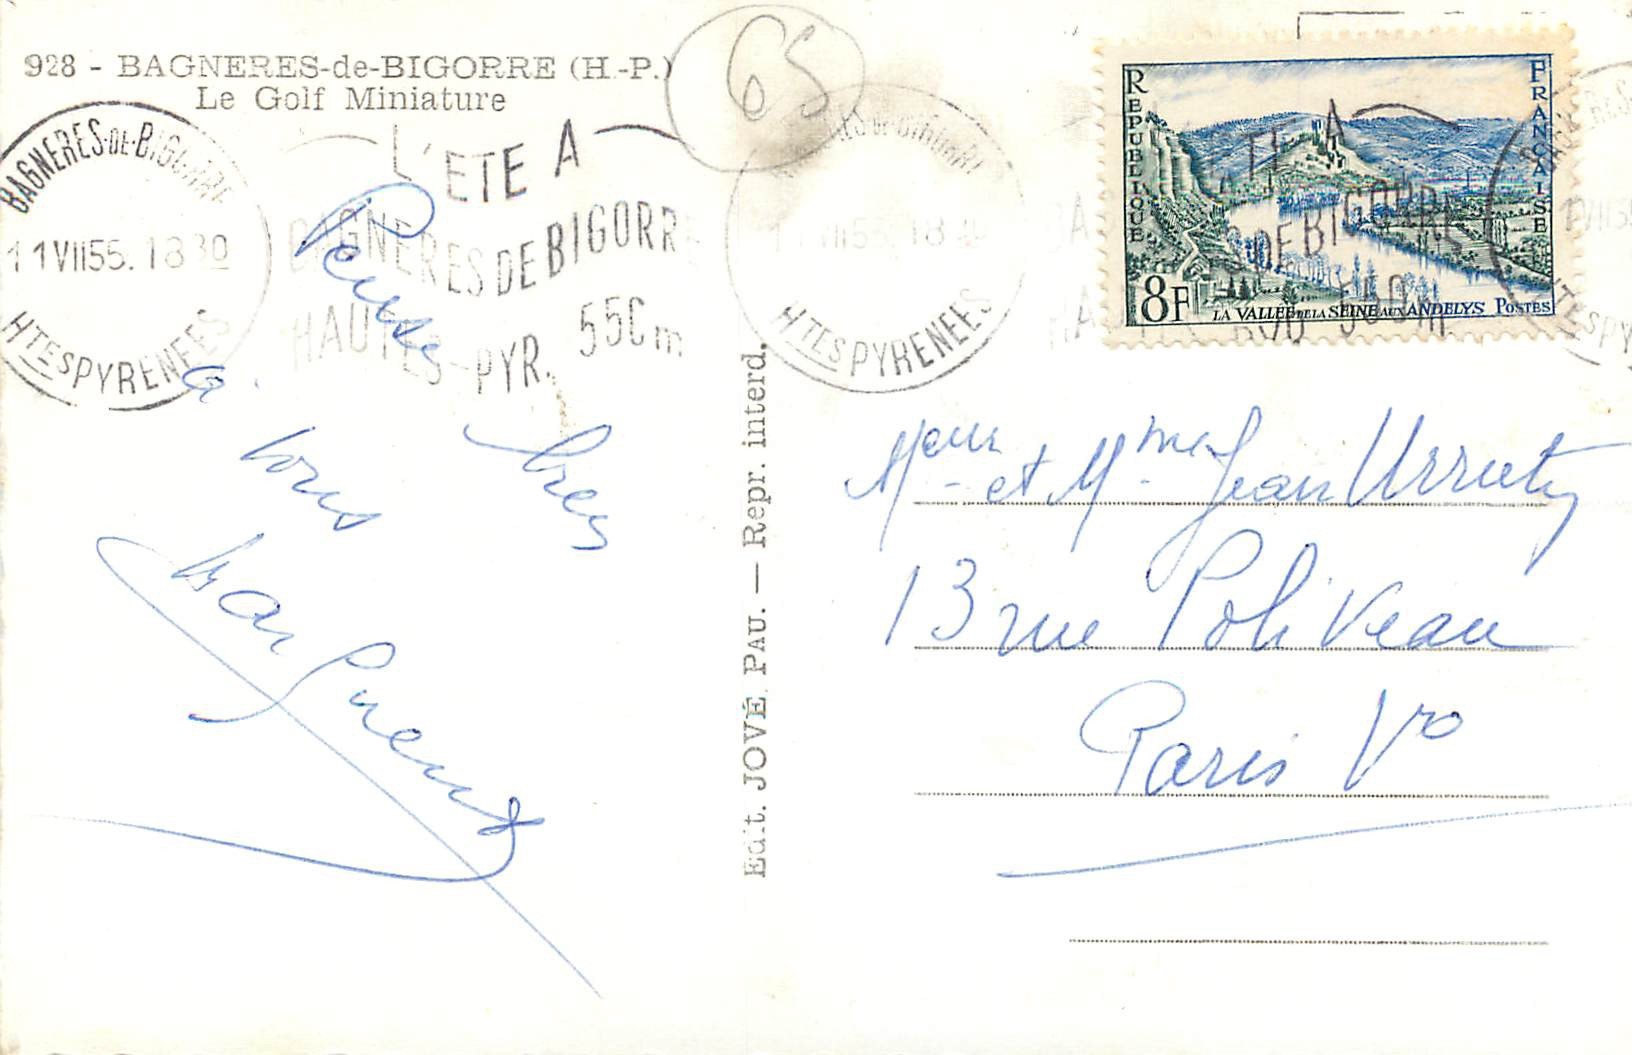 928 - BAGNERES-de-BIGORRE (H.-P.)
Le Golf Miniature
65
BAGNERES-DE-BIGORRE
11 VII 55. 18 30
HTES PYRENEES
L'ETE A
BAGNERES DE BIGORRE
HAUTES-PYR. 550m
BAGNERES-DE-BIGORRE
11 VII 55 18 30
HTES PYRENEES
REPUBLIQUE
FRANÇAISE
8F
LA VALLÉE DE LA SEINE AUX ANDELYS POSTES
ETE A
BIGORRE
550m
Pensées
à tous
Edit. JOVÉ, PAU. — Repr. interd.
Meur et Mme Jean Urruty
13 rue Poliveau
Paris Vo